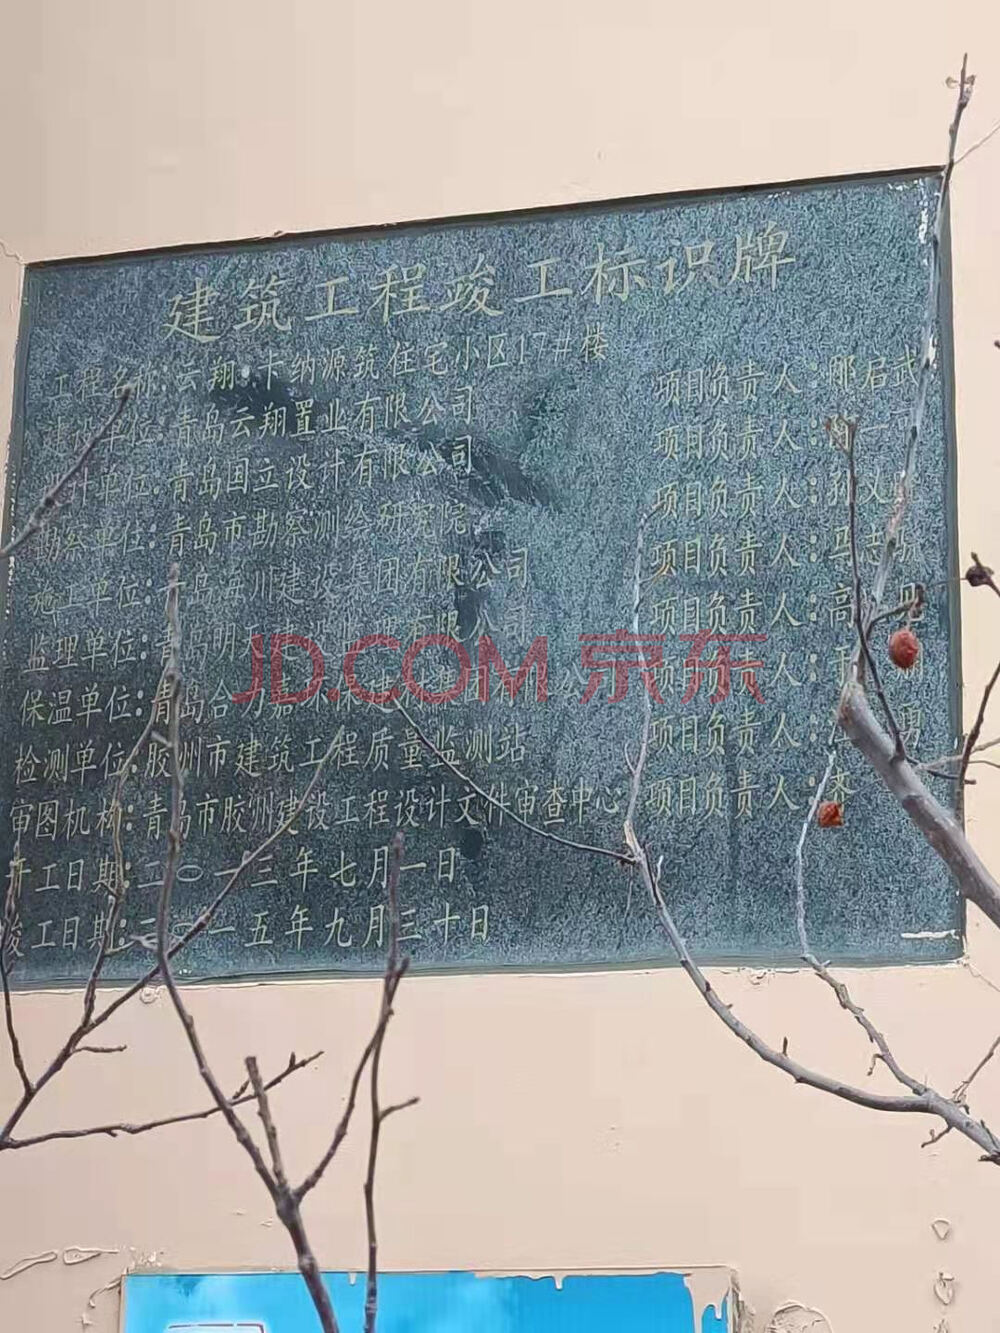 建筑工程竣工标识牌
工程名称:云翔·卡纳源筑住宅小区17#楼
建设单位:青岛云翔置业有限公司 项目负责人:邴启武
设计单位:青岛国立设计有限公司 项目负责人: 一
勘察单位:青岛市勘察测绘研究院 项目负责人:孙义
施工单位: 青岛海川建设集团有限公司 项目负责人:马志
监理单位:青 明 有限公司 项目负责人:高
保温单位:青岛合力嘉 建材集团有 项目负责人:于
检测单位:胶州市建筑工程质量监测站 项目负责人: 勇
审图机构:青岛市胶州建设工程设计文件审查中心 项目负责人:
开工日期:二〇一三年七月一日
竣工日期:二〇一五年九月三十日
JD.COM 京东